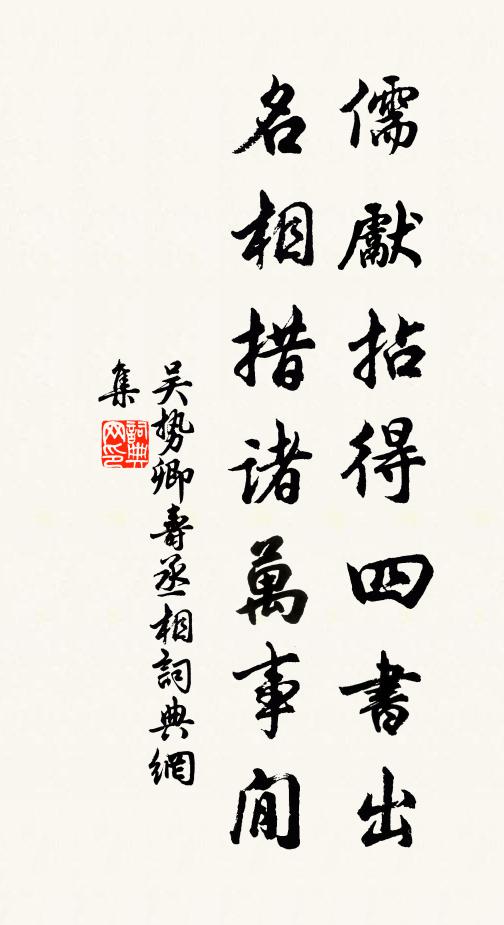 儒獻拈得四書出
名相措諸萬事間
吴势卿壽丞相詞典網
集
詞典网印